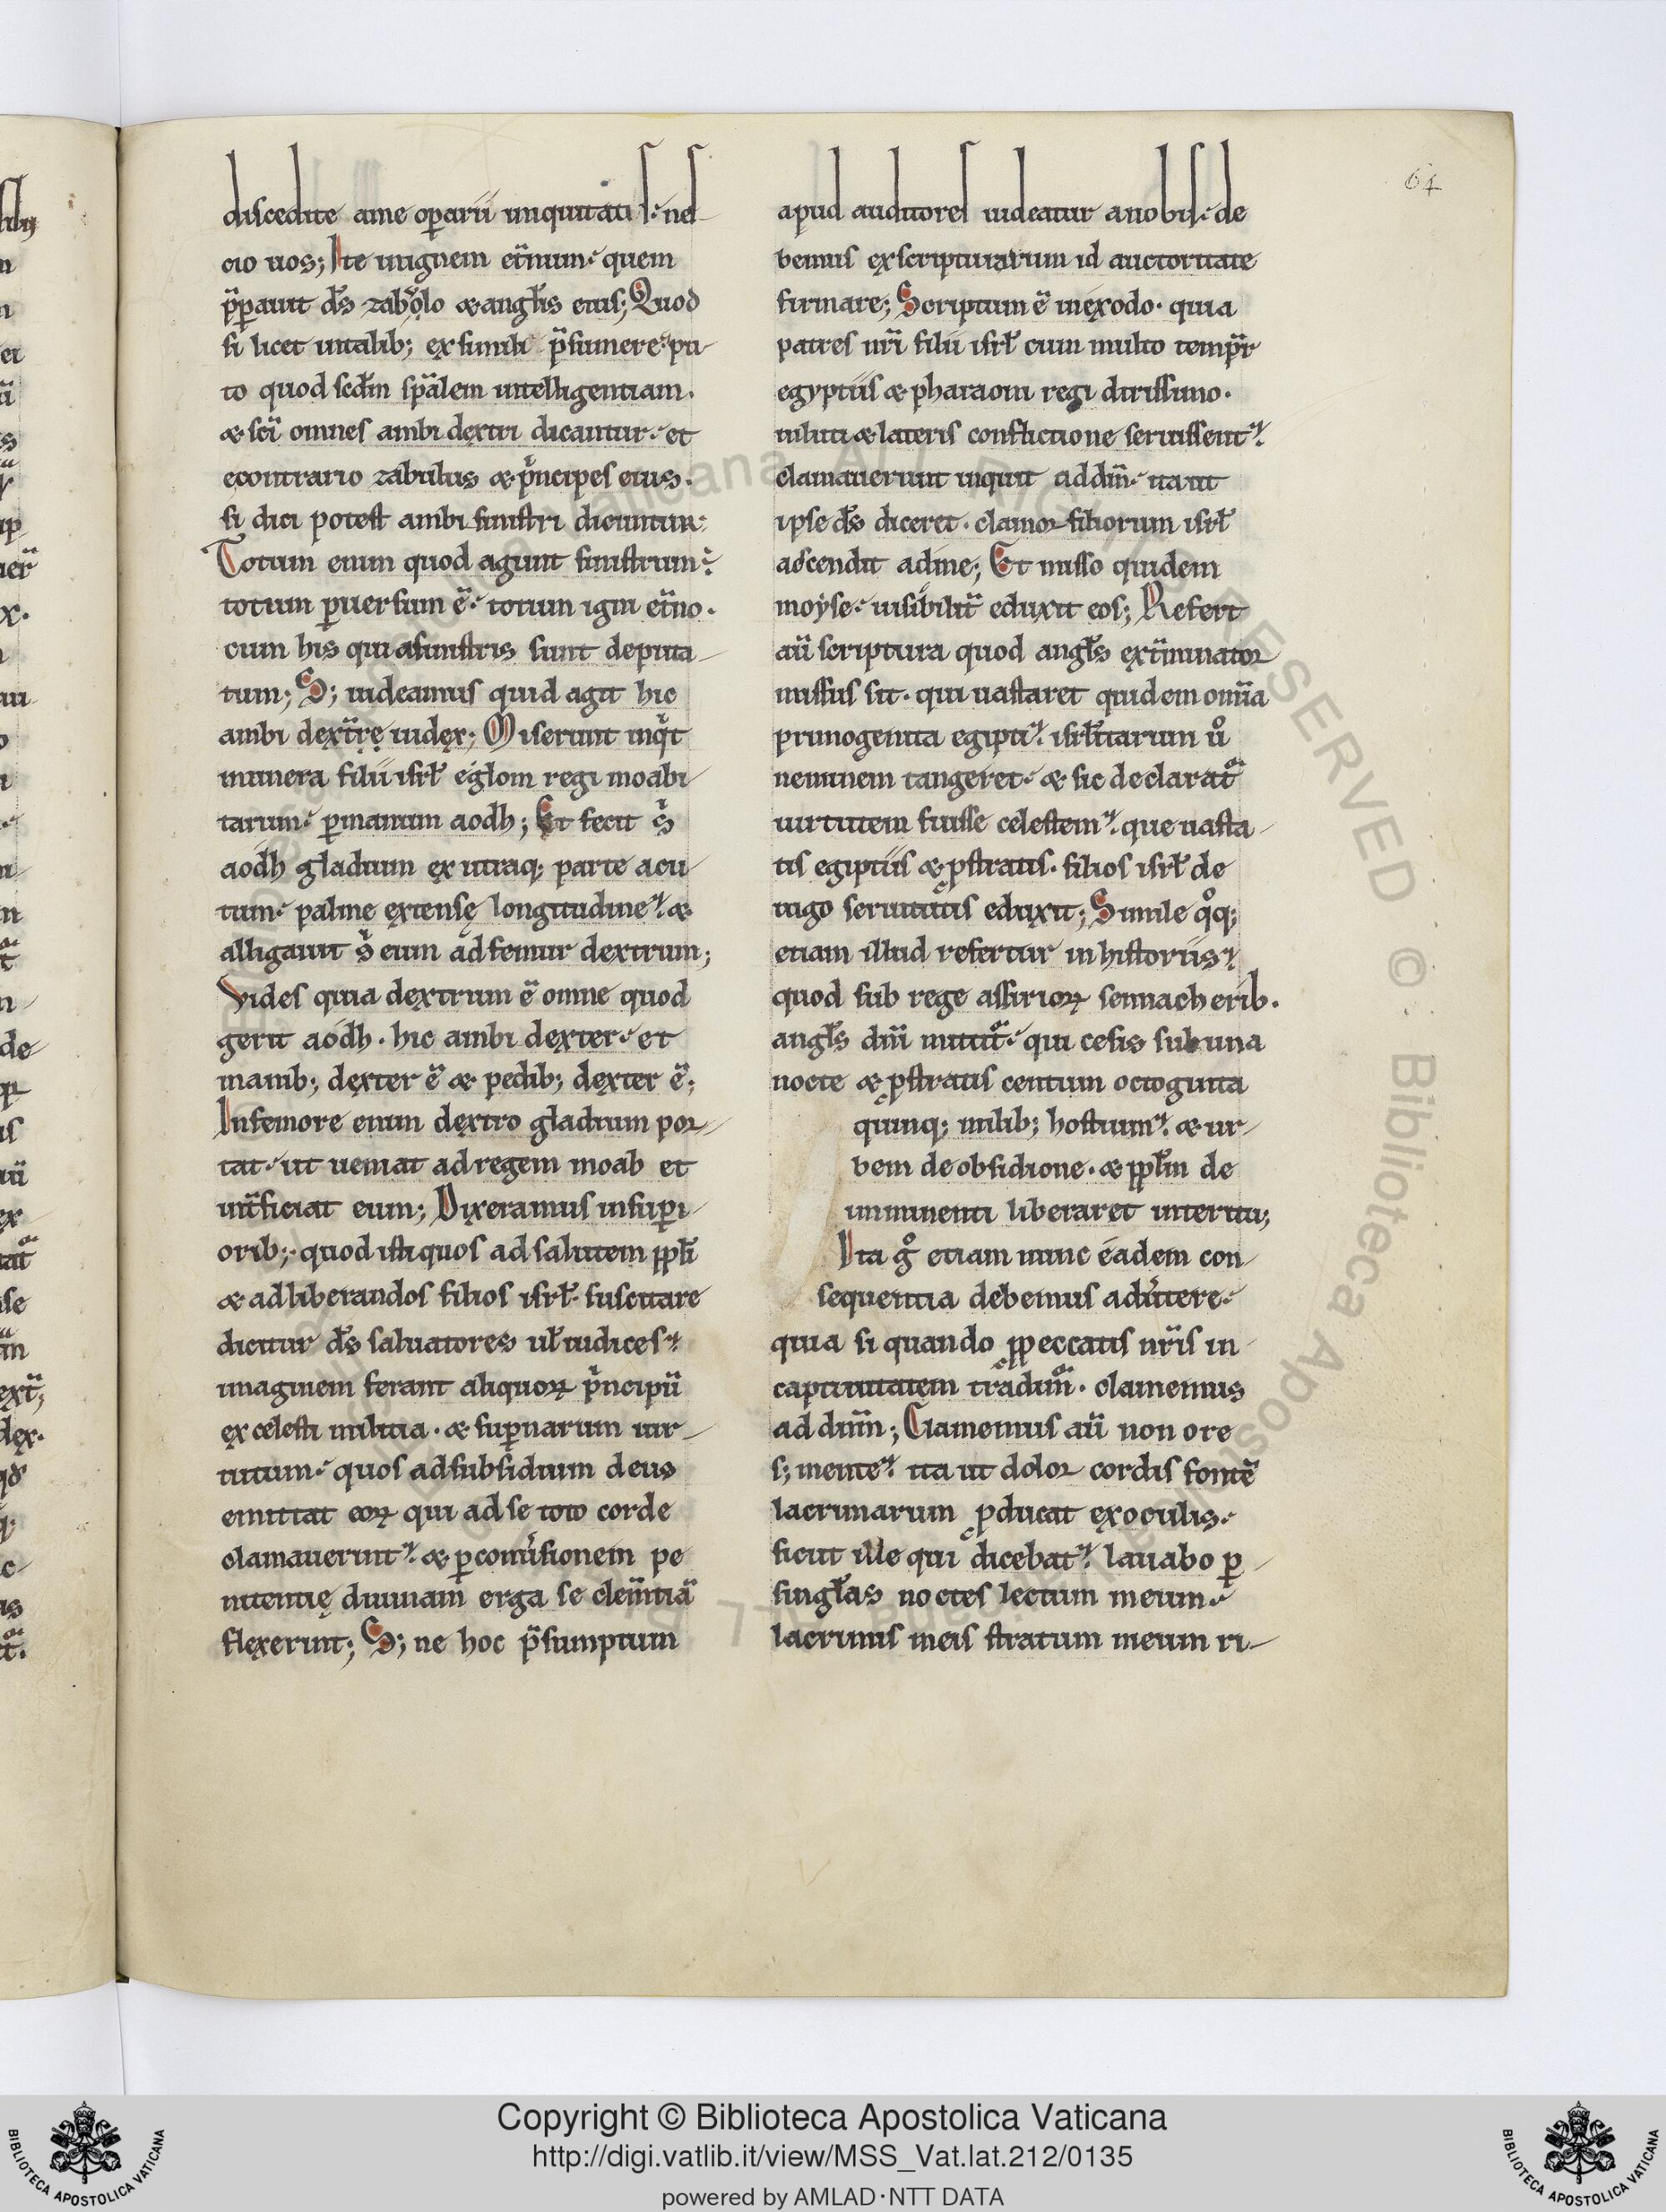 64
discedite a me op̄arii iniquitatis: nes
cio uos; Ite in ignem et̄num: quem
p̄parauit d̄s zabolo & anglis eius; Quod
si licet in talib; ex simili p̄sumere: pu
to quod scd̄m sp̄alem intelligentiam.
& sc̄i omnes ambi dextri dicantur: et
econtrario zabulus & pͥncipes eius.
si dici potest ambi sinistri dicuntur:
Totum enim quod agunt sinistrum:
totum ꝑuersum ē: totum igni et̄no.
cum his qui a sinistris sunt deputa
tum; S; uideamus quid agit hic
ambi dext̄rę iudex; Miserunt inqͥt
munera filii isrl̄ eglom regi moabi
tarum: ꝑ manum aodh; Et fecit sͥ
aodh gladium ex utraq; parte acu
tum: palme extensę longitudine: &
alligauit sͥ eum ad femur dextrum;
Vides quia dextrum ē omne quod
gerit aodh. hic ambi dexter: et
manib; dexter ē & pedib; dexter ē;
In femore enim dextro gladium por
tat: ut ueniat ad regem moab et
int̄ficiat eum; Dixeramus in suꝑi
orib; quod isti quos ad salutem ppl̄i
& ad liberandos filios isrl̄ suscitare
dicitur d̄s saluatores ul̄ iudices:
imaginem ferant aliquoꝝ pͥncipū
ex celesti militia. & suꝑnarum uir
tutum: quos ad subsidium deus
emittat eoꝝ qui ad se toto corde
clamauerint: & ꝑ conuͥsionem pe
nitentię diuinam erga se clem̄tiā
flexerint; S; ne hoc p̄sumptum
apud auditores uideatur a nobis: de
bemus ex scripturarum id auctoritate
firmare; Scriptum ē in exodo. quia
patres nr̄i filii isrl̄ cum multo temp̄r
egyptiis & pharaoni regi durissimo.
in luti & lateris conflictione seruissent:
clamauerunt inquit ad dn̄m: ita ut
ipse d̄s diceret. clamor filiorum isrl̄
ascendit ad me; Et misso quidem
moyse: uisibilit̄ eduxit eos; Refert
aū scriptura quod angl̄s ext̄minator
missus sit. qui uastaret quidem om̄ia
primogenita egipti: isrl̄itarum uͦ
neminem tangeret: & sic declarat̄
uirtutem fuisse celestem: que uasta
tis egiptiis & ꝓstratis. filios isrl̄ de
iugo seruitutis eduxit; Simile qͦq;
etiam illud refertur in historiis:
quod sub rege assirioꝝ sennacherib.
angl̄s dn̄i mittit̄: qui cesis sub una
nocte & ꝓstratis centum octoginta
quinq; milib; hostium: & ur
bem de obsidione. & ppl̄m de
imminenti liberaret interitu;
Ita gͦ etiam nunc eadem con
sequentia debemus aduͥtere:
quia si quando ꝓ peccatis nr̄is in
captiuitatem tradim̄. clamemus
ad dn̄m; Clamemus aū non ore
s; mente: ita ut dolor cordis fontē
lacrimarum ꝓducat ex oculis:
sicut ille qui dicebat: lauabo ꝑ
singl̄as noctes lectum meum:
lacrimis meis stratum meum ri
Copyright © Biblioteca Apostolica Vaticana
http://digi.vatlib.it/view/MSS_Vat.lat.212/0135
powered by AMLAD·NTT DATA
BIBLIOTECA APOSTOLICA VATICANA
BIBLIOTECA APOSTOLICA VATICANA